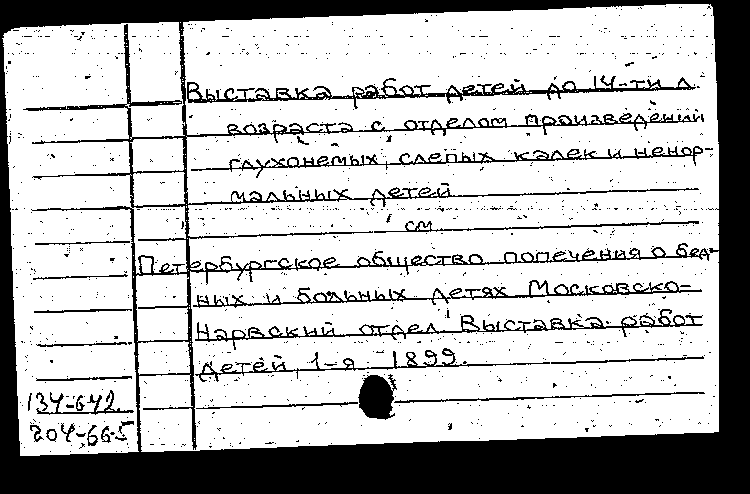 Выставка работ детей до 14-ти л.
возраста с отделом произведений
глухонемых, слепых калек и ненор-
мальных детей
см
Петербургское общество попечения о бед-
ных и больных детях Московско-
Нарвский отдел Выставка работ
детей, 1-я 1899.
134-642.
204-665